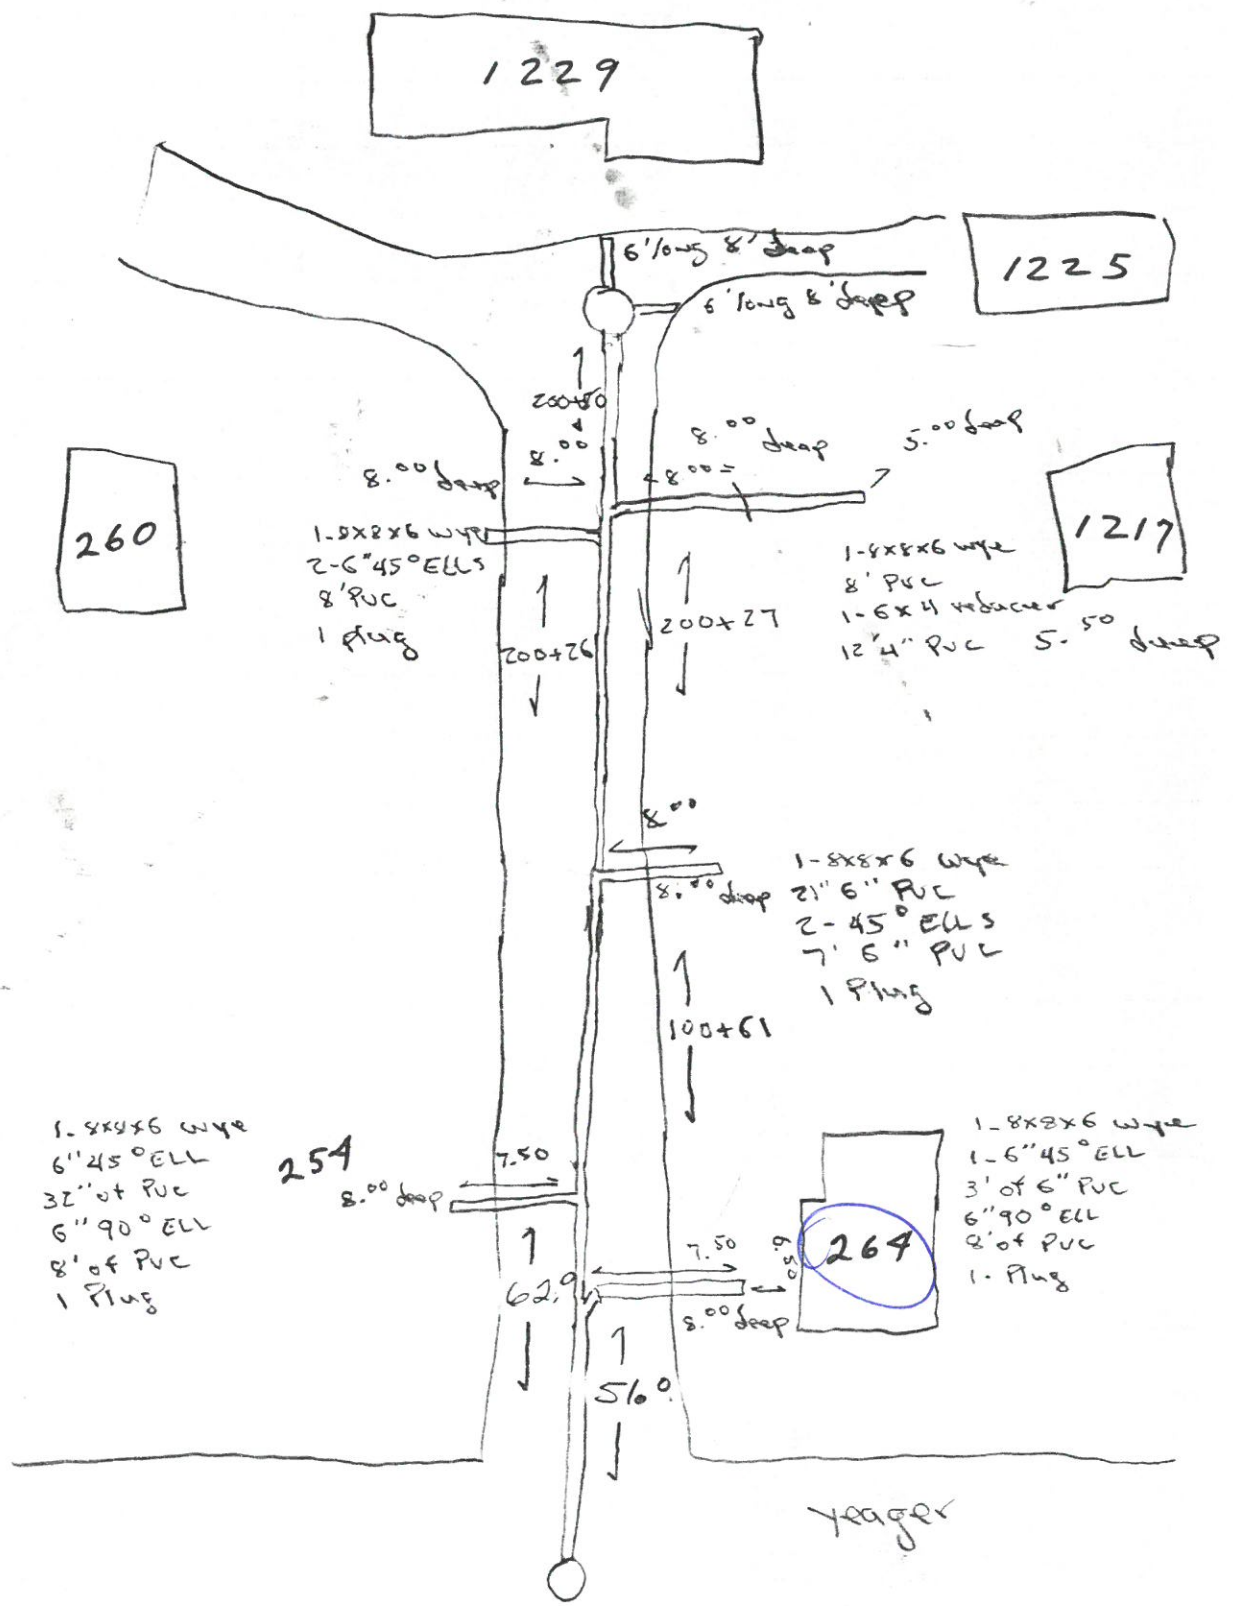 1229
6' long 8' deep
1225
6' long 8' deep
200+80
8.00
8.00 deep
8.00 deep
5.00 deep
8.00 =
260
1-8x8x6 wye
2-6" 45° ELLs
8' PVC
1 plug
1217
1-8x8x6 wye
8' PVC
1-6x4 reducer
12' 4" PVC
5.50 deep
200+26
200+27
8.00
8.00 deep
1-8x8x6 wye
21" 6" PVC
2-45° ELLS
7' 6" PVC
1 Plug
100+61
1-8x8x6 wye
6" 45° ELL
32" of PVC
6" 90° ELL
8' of PVC
1 Plug
254
7.50
8.00 deep
62.0
7.50
6.50
264
8.00 deep
1-8x8x6 wye
1-6" 45° ELL
3' of 6" PVC
6" 90° ELL
8' of PVC
1-Plug
56.0
Yeager